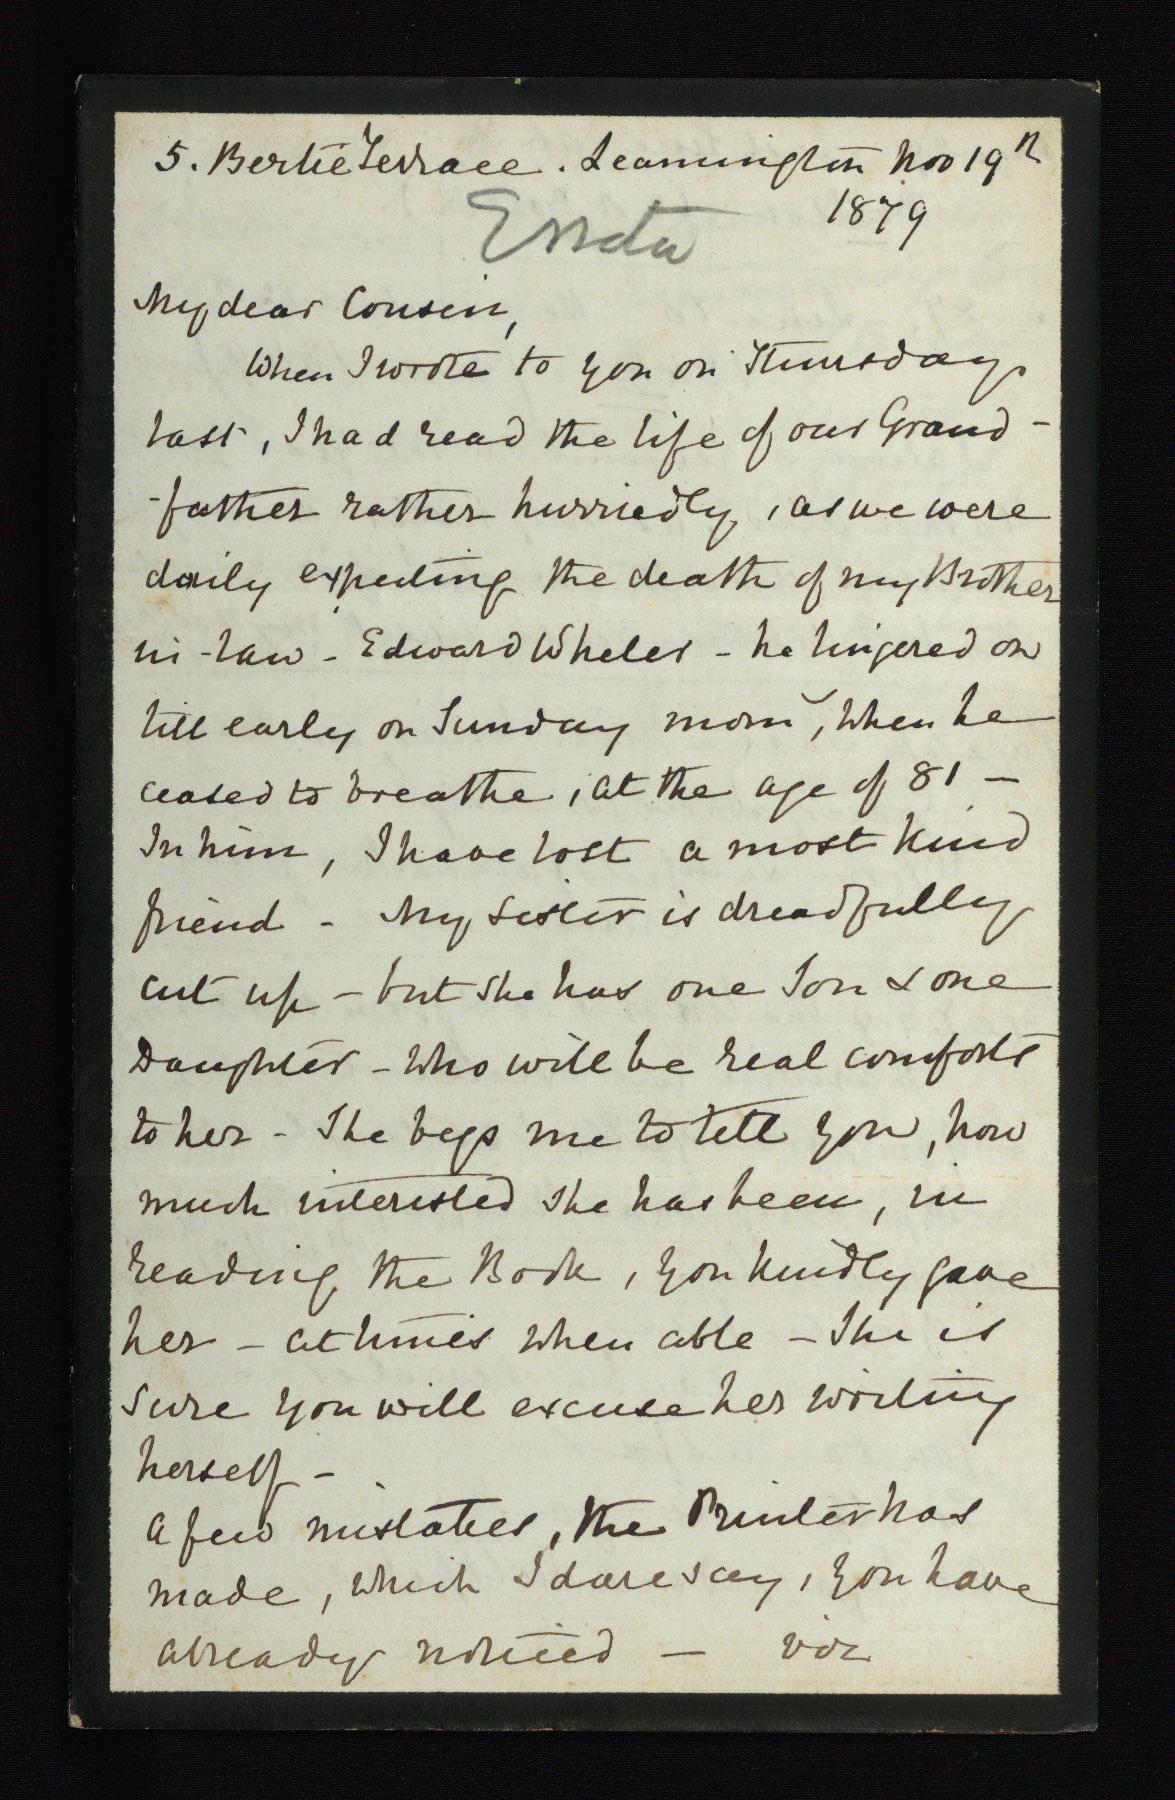 5. Bertie Terrace. Leamington Nov 19th
1879
Errata
My dear Cousin,
When I wrote to you on Thursday
last, I had read the life of our Grand-
-father rather hurriedly, as we were
daily expecting the death of my Brother
in-law - Edward Wheler - he lingered on
till early on Sunday morn, when he
ceased to breathe, at the age of 81 —
In him, I have lost a most kind
friend - My Sister is dreadfully
cut up - but she has one Son & one
Daughter - who will be real comforts
to her - She begs me to tell you, how
much interested she has been, in
reading the Book, you kindly gave
her - at times when able - She is
sure you will excuse her writing
herself -
A few mistakes, the Printer has
made, which I dare say, you have
already noticed — viz